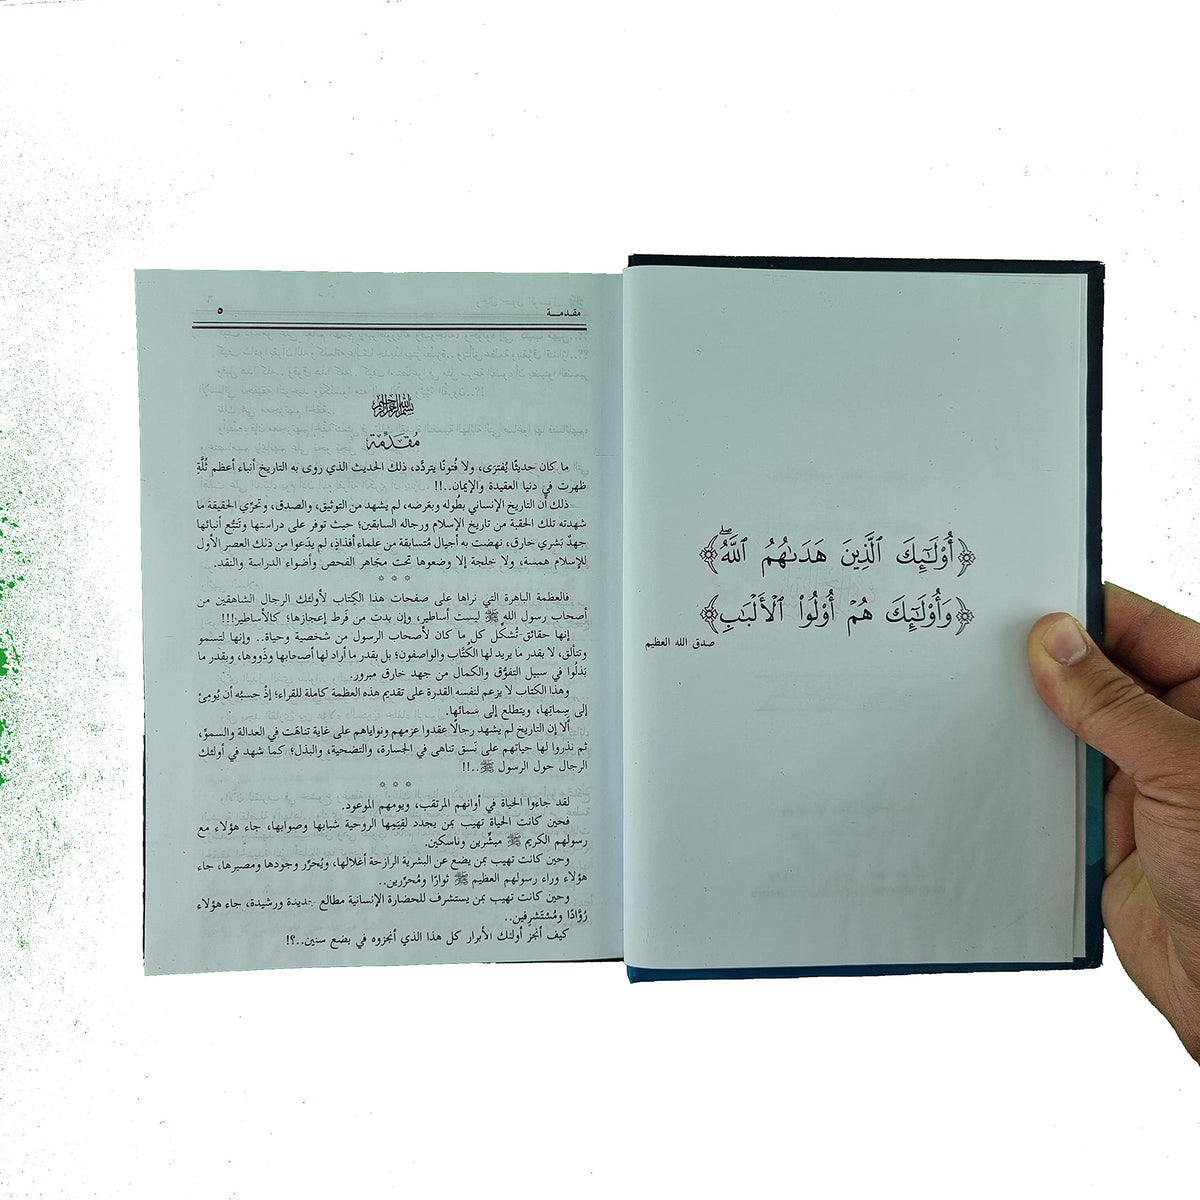 ﴿أُو۟لَـٰٓئِكَ ٱلَّذِينَ هَدَىٰهُمُ ٱللَّهُۖ﴾
﴿وَأُو۟لَـٰٓئِكَ هُمْ أُو۟لُوا۟ ٱلْأَلْبَـٰبِ﴾
صدق الله العظيم
مقدمة ٥
بسم الله الرحمن الرحيم
مُقَدِّمَة
ما كان حديثًا يُفترَى، ولا فُتونًا يتردَّد، ذلك الحديث الذي روى به التاريخ أنباء أعظم ثُلَّةٍ
ظهرت في دنيا العقيدة والإيمان..!!
ذلك أن التاريخ الإنساني بطُوله وبعَرضه، لم يشهد من التوثيق، والصدق، وتحرِّي الحقيقة ما
شهدته تلك الحقبة من تاريخ الإسلام ورجاله السابقين؛ حيث توفر على دراستها وتَتبُّع أنبائها
جهدٌ بَشري خارق، نهضت به أجيال مُتسابقة من علماء أفذاذٍ، لم يدَعوا من ذلك العصر الأول
للإسلام همسة، ولا خلجة إلا وضعوها تحت مجَاهر الفحص وأضواء الدراسة والنقد.
* * *
فالعظمة الباهرة التي نراها على صفحات هذا الكِتاب لأولئك الرجال الشاهقين من
أصحاب رسول الله ﷺ ليست أساطير، وإن بدت من فَرط إعجازها؛ كالأساطير!!!
إنها حقائق تُشكل كل ما كان لأصحاب الرسول من شخصية وحياة.. وإنها لتسمُو
وتتألق، لا بقدر ما يريد لها الكُتَّاب والواصفون؛ بل بقدر ما أراد لها أصحابها وذَووها، وبقدر ما
بَذلُوا في سبيل التفوُّق والكمال من جهد خارق مبرور.
وهذا الكتاب لا يزعم لنفسه القدرة على تقديم هذه العظمة كاملة للقراء؛ إذْ حسبُه أن يُومِئ
إلى سِماتِها، ويتطلع إلى سَمائها.
ألَا إن التاريخ لم يشهد رجالًا عقدوا عزمهم ونواياهم على غاية تناهَت في العدالة والسموِّ،
ثم نذروا لها حياتهم على نَسق تناهى في الجسارة، والتضحية، والبذل؛ كما شهد في أولئك
الرجال حول الرسول ﷺ..!!
* * *
لقد جاءوا الحياة في أوانهم المرتقب، ويومهم الموعود.
فحين كانت الحياة تهيب بمن يجدد لقِيَمِها الروحية شبابها وصوابها، جاء هؤلاء مع
رسولهم الكريم ﷺ مبشِّرين وناسكين.
وحين كانت تهيب بمن يضع عن البشرية الرازحة أغلالها، ويُحرِّر وجودها ومصيرها، جاء
هؤلاء وراء رسولهم العظيم ﷺ ثوارًا ومُحرِّرين..
وحين كانت تهيب بمن يستشرف للحضارة الإنسانية مطالع جديدة ورشيدة، جاء هؤلاء
رُوَّادًا ومُسْتَشرِفين..
كيف أنجز أولئك الأبرار كل هذا الذي أنجزوه في بضع سنين..؟!